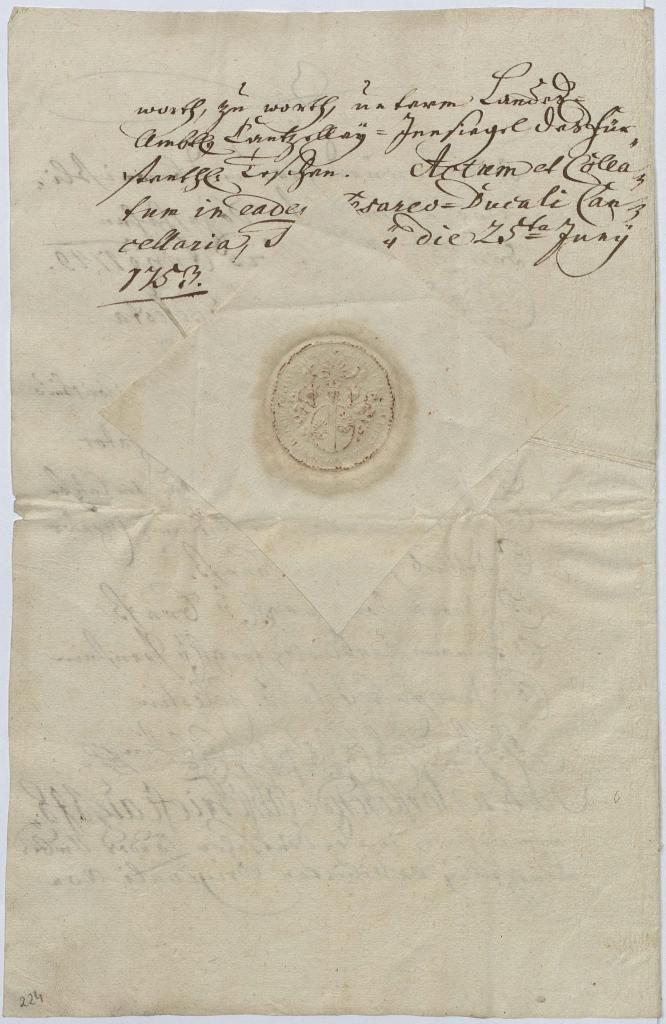 worth, zu worth, unterm Landes=
Ambts Cantzelley=Innsiegel des Für=
stenth: Teschen. Actum et Colla=
tum in eade sareo=Ducali Can=
cellaria, T ÿ die 25ta Junÿ
1753.
224